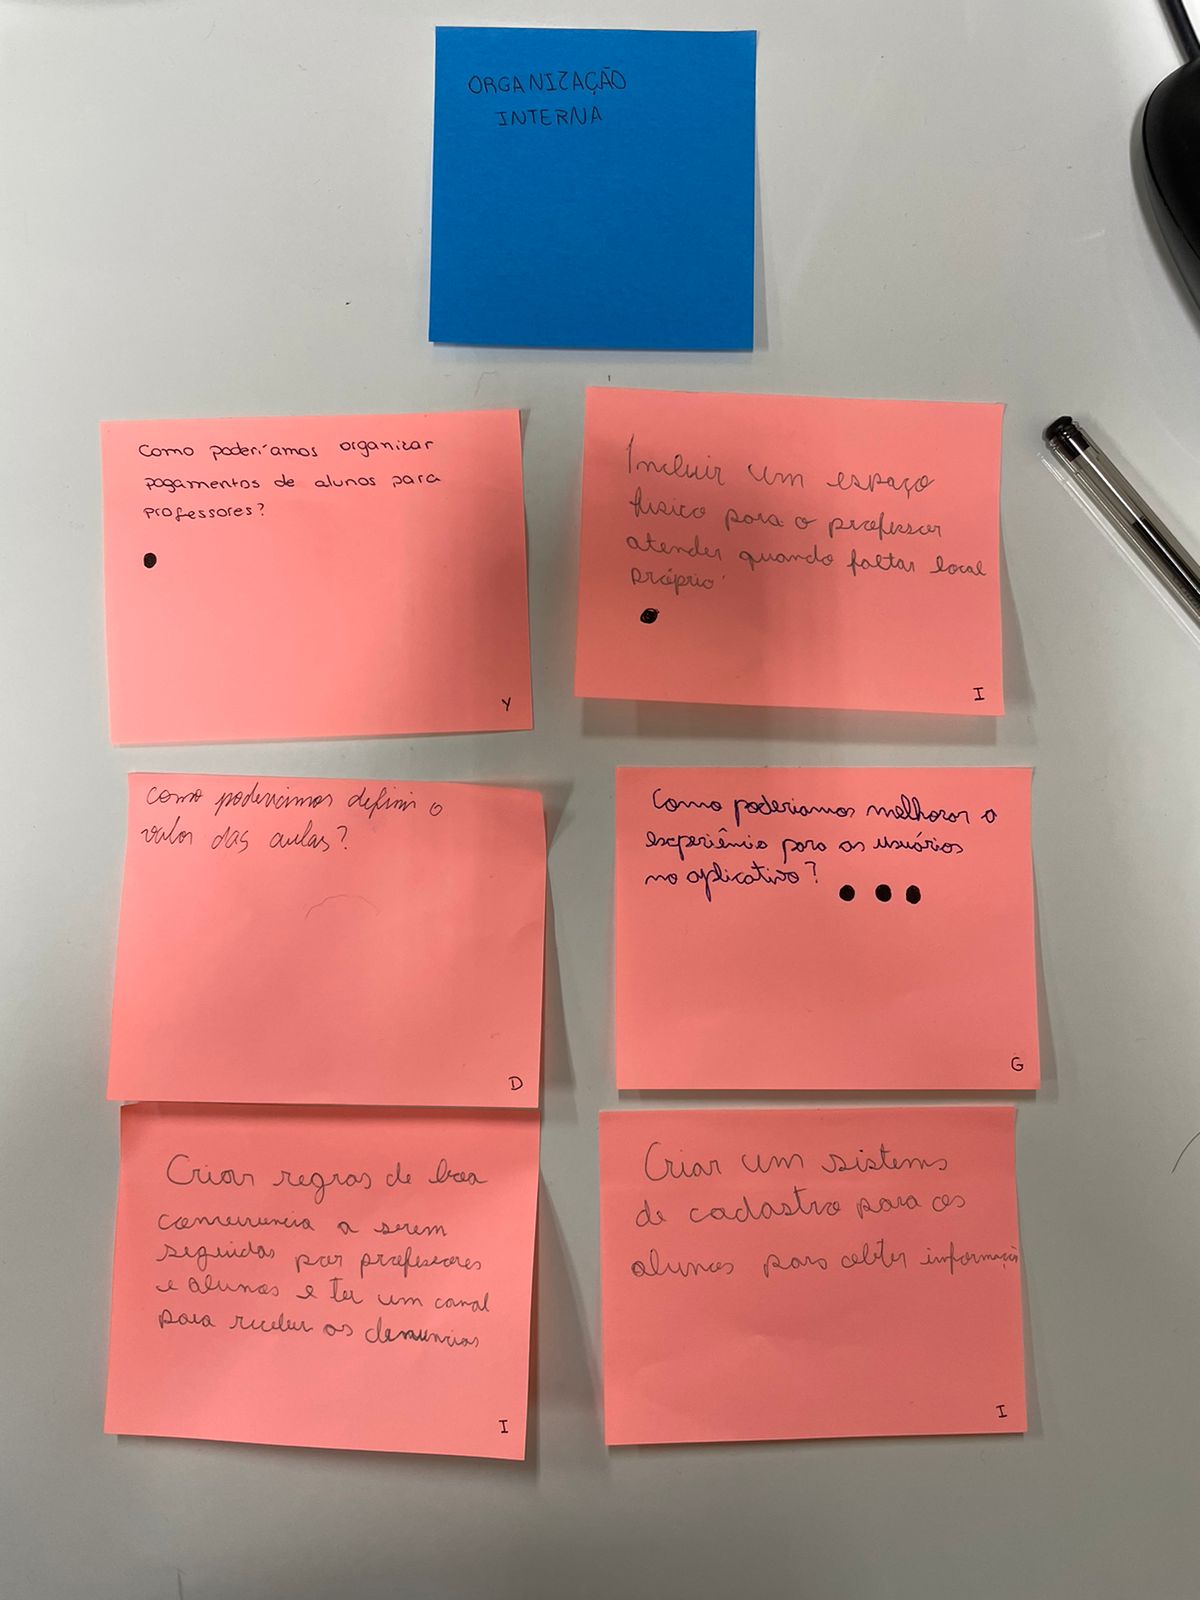 ORGANIZAÇÃO
INTERNA
Como poderíamos organizar
pagamentos de alunos para
professores?
Y
Incluir um espaço
físico para o professor
atender quando faltar local
próprio
I
Como poderíamos definir o
valor das aulas?
D
Como poderiamos melhorar a
experiência para os usuários
no aplicativo?
G
Criar regras de boa
a serem
seguidas por professores
e alunos e ter um canal
para receber as denuncias
I
Criar um sistema
de cadastro para os
alunos para obter
I